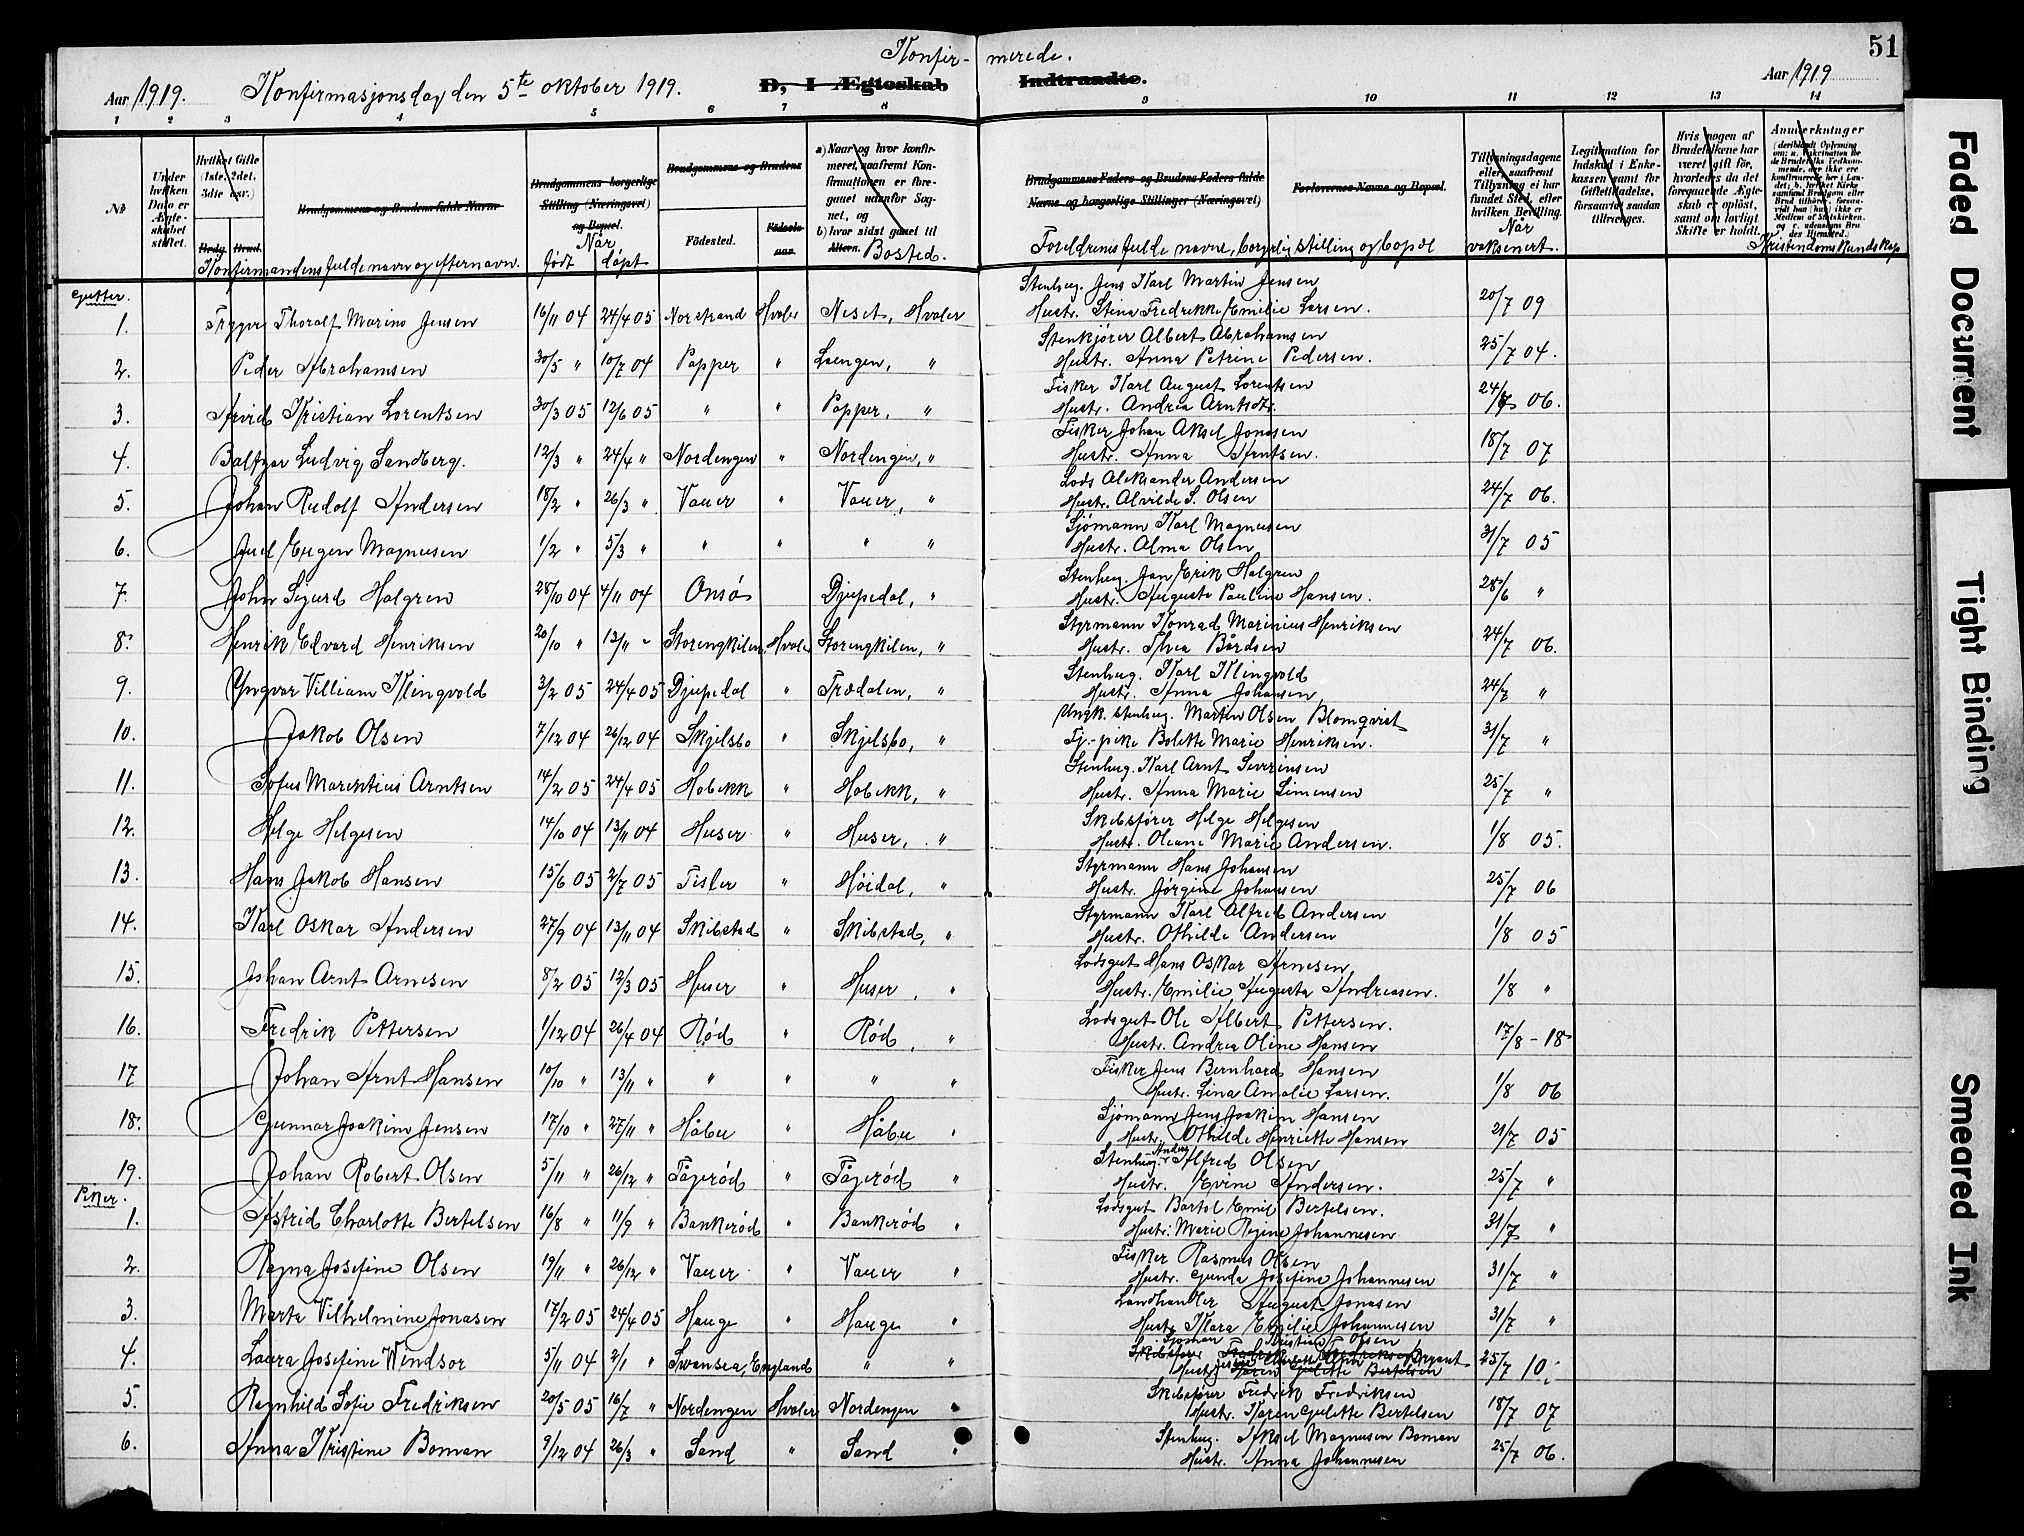 Konfir- merede.
51
Aar 1919. Konfirmasjonsdag den 5te oktober 1919. D, I Ægteskab Indtraadte. Aar 1919
1 2 3 4 5 6 7 8 9 10 11 12 13 14
№
Under hvilken Dato er Ægteskabet stiftet.
Hvilket Gifte (1ste, 2det, 3die osv.)
Brdg. Brud.
Brudgommens og Brudens fulde Navne
Konfirmandens fulde navn og efternavn.
Brudgommens borgerlige Stilling (Næringsvei) og Bopæl.
Når
født døpt
Brudgommens og Brudens
Fødested.
a) Naar og hvor konfirmeret, saafremt Konfirmationen er foregaaet udenfor Sognet, og
b) hvor sidst gaaet til Alters.
Bosted.
Brudgommens Faders og Brudens Faders fulde Navne og borgerlige Stillinger (Næringsvei)
Forlovernes Navne og Bopæl.
Foreldrenes fulde navne, borgerlig stilling og bopæl
Tillysningsdagene eller saafremt Tillysning ei har fundet Sted, efter hvilken Bevilling.
Når vaksinert.
Legitimation for Indskud i Enkekassen samt for Giftetilladelse, forsaavidt saadan tiltrænges.
Hvis nogen af Brudefolkene har været gift før, hvorledes da det foregaaende Ægteskab er opløst, samt om lovligt Skifte er holdt.
Anmerkninger
Kristendomskundskap
Gutter.
Stenhug. Jens Karl Martin Jensen
1. Trygve Thoralf Marino Jensen 16/11 04 24/4 05 Norstrand Hvaler Neset, Hvaler Hustr. Stina Fredrikke Emilie Larsen. 20/7 09
Stenkjører Albert Abrahamsen
2. Peder Abrahamsen 30/5 " 10/7 04 Papper " Laengen, " Hustr. Anna Petrine Pedersen. 25/7 04.
Fisker Karl August Lorentsen
3. Arvid Kristian Lorentsen 30/3 05 12/6 05 " " Papper, " Hustr. Andrea Arntsdtr. 24/7 06.
Fisker Johan Aksel Jonasen
4. Baltzar Ludvig Sandberg. 12/3 " 24/4 " Nordengen " Nordengen, " Hustr. Anna Arntsen. 18/7 07
Lods Aleksander Andersen
5. Johan Rudolf Andersen 18/2 " 26/3 " Vauer " Vauer, " Hustr. Alvilde S. Olsen 24/7 06.
Sjømann Karl Magnusen
6. Juel Eugen Magnusen 1/2 " 5/3 " " " " " Hustr. Alma Olsen 31/7 05
Stenhug. Jan Erik Holgren
7. John Sigurd Holgren 28/10 04 4/11 04 Onsø Djupedal, " Hustr. Augusta Pauline Hansen. 28/6 "
Styrmann Konrad Marinius Henriksen
8. Henrik Edvard Henriksen 20/10 " 13/11 " Storengkilen, Hvaler Storengkilen, " Hustr. Thea Bårdsen 24/7 06.
Stenhug. Karl Klingvold
9. Yngvar Villiam Klingvold 3/2 05 24/4 05 Djupedal " Trædalen, " Hustr. Anna Johansen 24/7 "
Ungk. stenhug. Martin Olsen Blomqvist
10. Jakob Olsen 7/12 04 26/12 04 Skjelsbo " Skjelsbo, " Tj.-pike Bolette Marie Henriksen. 31/7 "
Stenhug. Karl Arnt Severinsen
11. Sofus Marentius Arntsen 14/2 05 24/4 05 Hobekk " Hobekk, " Hustr. Anna Marie Simensen 25/7 "
Skibsfører Helge Helgesen
12. Helge Helgesen 14/10 04 13/11 04 Huser " Huser, " Hustr. Oleane Marie Andersen. 1/8 05.
Styrmann Hans Johansen
13. Hans Jakob Hansen 15/6 05 2/7 05 Tisler " Høidal, " Hustr. Jørgine Johansen 25/7 06
Styrmann Karl Alfred Andersen
14. Karl Oskar Andersen 27/9 04 13/11 04 Skibstad " Skibstad, " Hustr. Othilde Andersen 1/8 05
Lodsgut Hans Oskar Arnesen
15. Johan Arnt Arnesen 8/2 05 12/3 05 Huser " Huser, " Hustr. Emilie Augusta Andreasen. 1/8 "
Lodsgut Ole Albert Pettersen.
16. Fredrik Pettersen 1/12 04 26/4 04 Rød " Rød, " Hustr. Andrea Oline Hansen 17/8 - 18
Fisker Jens Bernhard Hansen
17 Johan Arnt Hansen 10/10 " 13/11 " " " " " Hustr. Lina Amalie Larsen. 1/8 06
Sjømann Jens Joakim Hansen
18. Gunnar Joakim Jensen 17/10 " 27/11 " Håbu " Håbu " Hustr. Othilde Henriette Hansen 21/7 05
Stenhug. Alfred Olsen
19. Johan Robert Olsen 5/11 " 26/12 " Fagerød " Fagerød " Hustr. Evine Andersen. 25/7 "
Piker.
Lodsgut Bartol Emil Bertelsen.
1. Astrid Charlotte Bertelsen 16/8 " 11/9 " Bankerød " Bankerød " Hustr. Marie Regine Johannesen 31/7 "
Fisker Rasmus Olsen
2. Ragna Josefine Olsen 19/11 " 26/12 " Vauer " Vauer " Hustr. Gunda Josefine Johannesen 31/7 "
Landhandler August Jonasen
3. Marta Vilhelmine Jonasen 17/2 05 24/4 05 Hauge " Hauge " Hustr. Klara Emilie Johannesen 31/7 "
Sjøman Kristian Olsen
Skibsfører Fredrik Fredriksen Bryant
4. Laura Josefine Windsor 5/11 04 2/1 " Swansea, England " " Hustr. Karen Gulette Bertelsen 25/7 10.
Skibsfører Fredrik Fredriksen
5. Ragnhild Sofie Fredriksen 20/5 05 16/7 " Nordengen Hvaler Nordengen " Hustr. Karen Gulette Bertelsen 18/7 07
Stenhug. Aksel Magnusen Boman
6. Anna Kristine Boman 9/12 04 26/3 " Sand " Sand " Hustr. Anna Johannesen 25/7 06.
Faded Document
Tight Binding
Smeared Ink